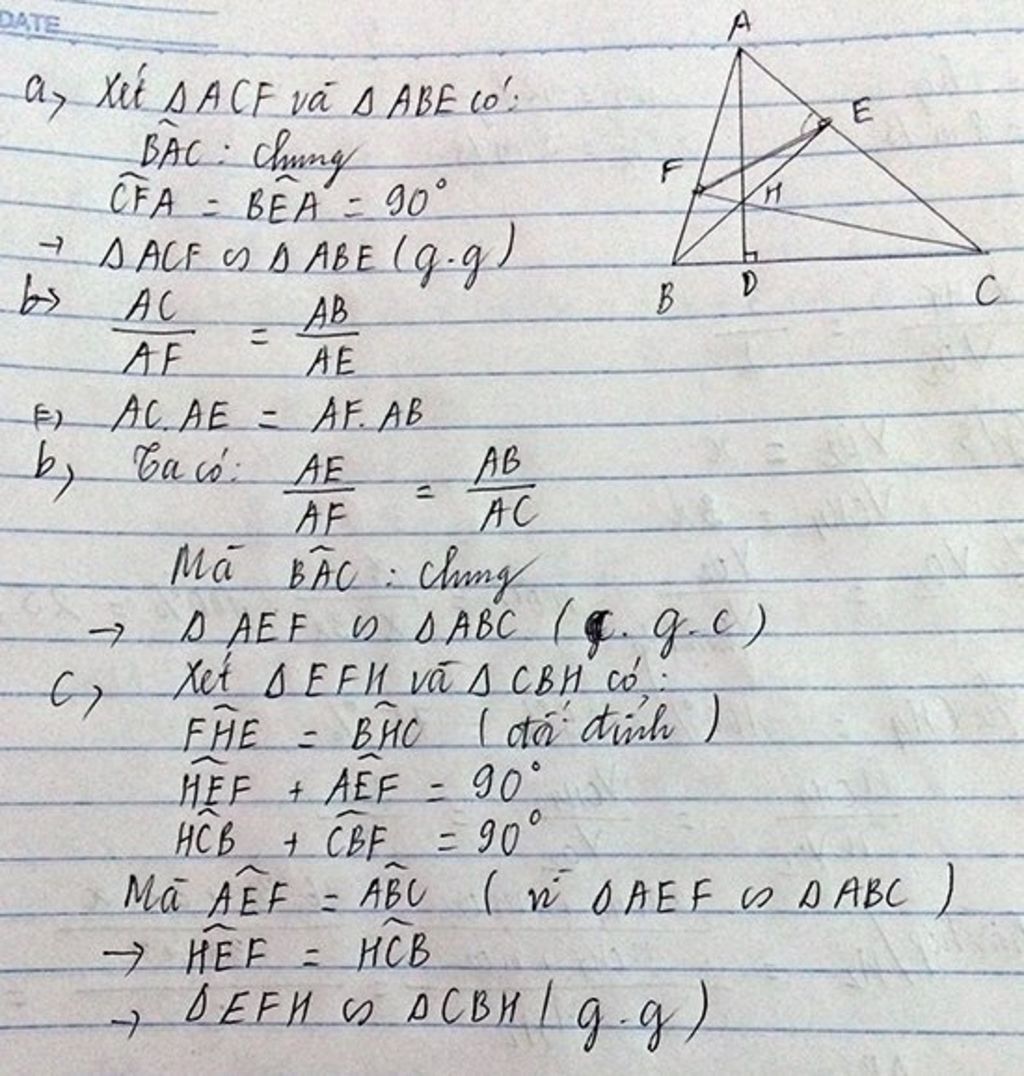 DATE
A
E
F
H
B D C
a, Xét Δ ACF và Δ ABE có:
B̂AC : chung
CF̂A = BÊA = 90°
→ Δ ACF ∽ Δ ABE (g.g)
b→ AC/AF = AB/AE
AC.AE = AF.AB
b, Ta có: AE/AF = AB/AC
Mà BÂC : chung
→ Δ AEF ∽ Δ ABC (c.g.c)
c, Xét Δ EFH và Δ CBH có:
FĤE = BĤC (đối đỉnh)
HÊF + AÊF = 90°
HĈB + CB̂F = 90°
Mà AÊF = AB̂C (vì Δ AEF ∽ Δ ABC)
→ HÊF = HĈB
→ Δ EFH ∽ Δ CBH (g.g)